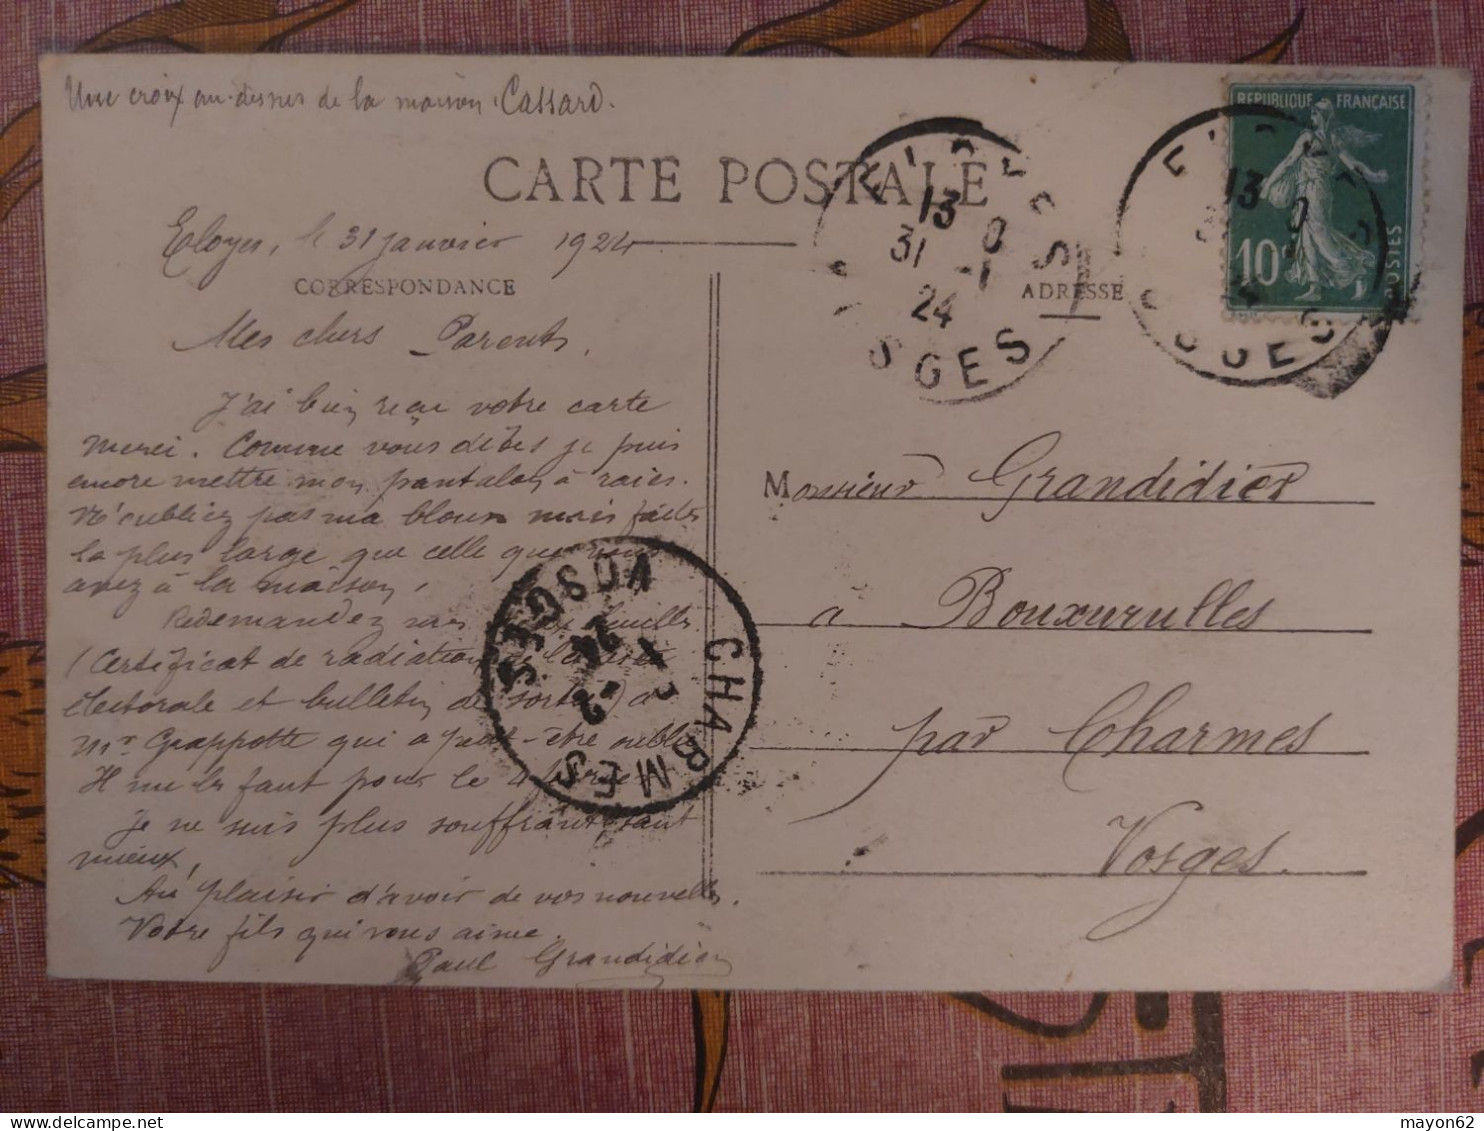 Une croix au-dessus de la maison Cassard.
CARTE POSTALE
Eloyes, le 31 janvier 1924
CORRESPONDANCE
ADRESSE
Mes chers Parents,
J'ai bien reçu votre carte
merci. Comme vous dites je puis
encore mettre mon pantalon à raies.
N'oubliez pas ma blouse mais faites
la plus large que celle que vous
avez à la maison.
Redemandez mes feuilles
(Certificat de radiation de la liste
électorale et bulletin de sortie) à
Mr Grappotte qui a peut-être oublié
Il me les faut pour le
Je ne suis plus souffrant tant
mieux.
Au plaisir d'avoir de vos nouvelles.
Votre fils qui vous aime.
Paul Grandidier
Monsieur Grandidier
à Bouxurulles
par Charmes
Vosges.
REPUBLIQUE FRANÇAISE
10c
POSTES
13
31 -1
24
CHARMES
VOSGES
mayon62